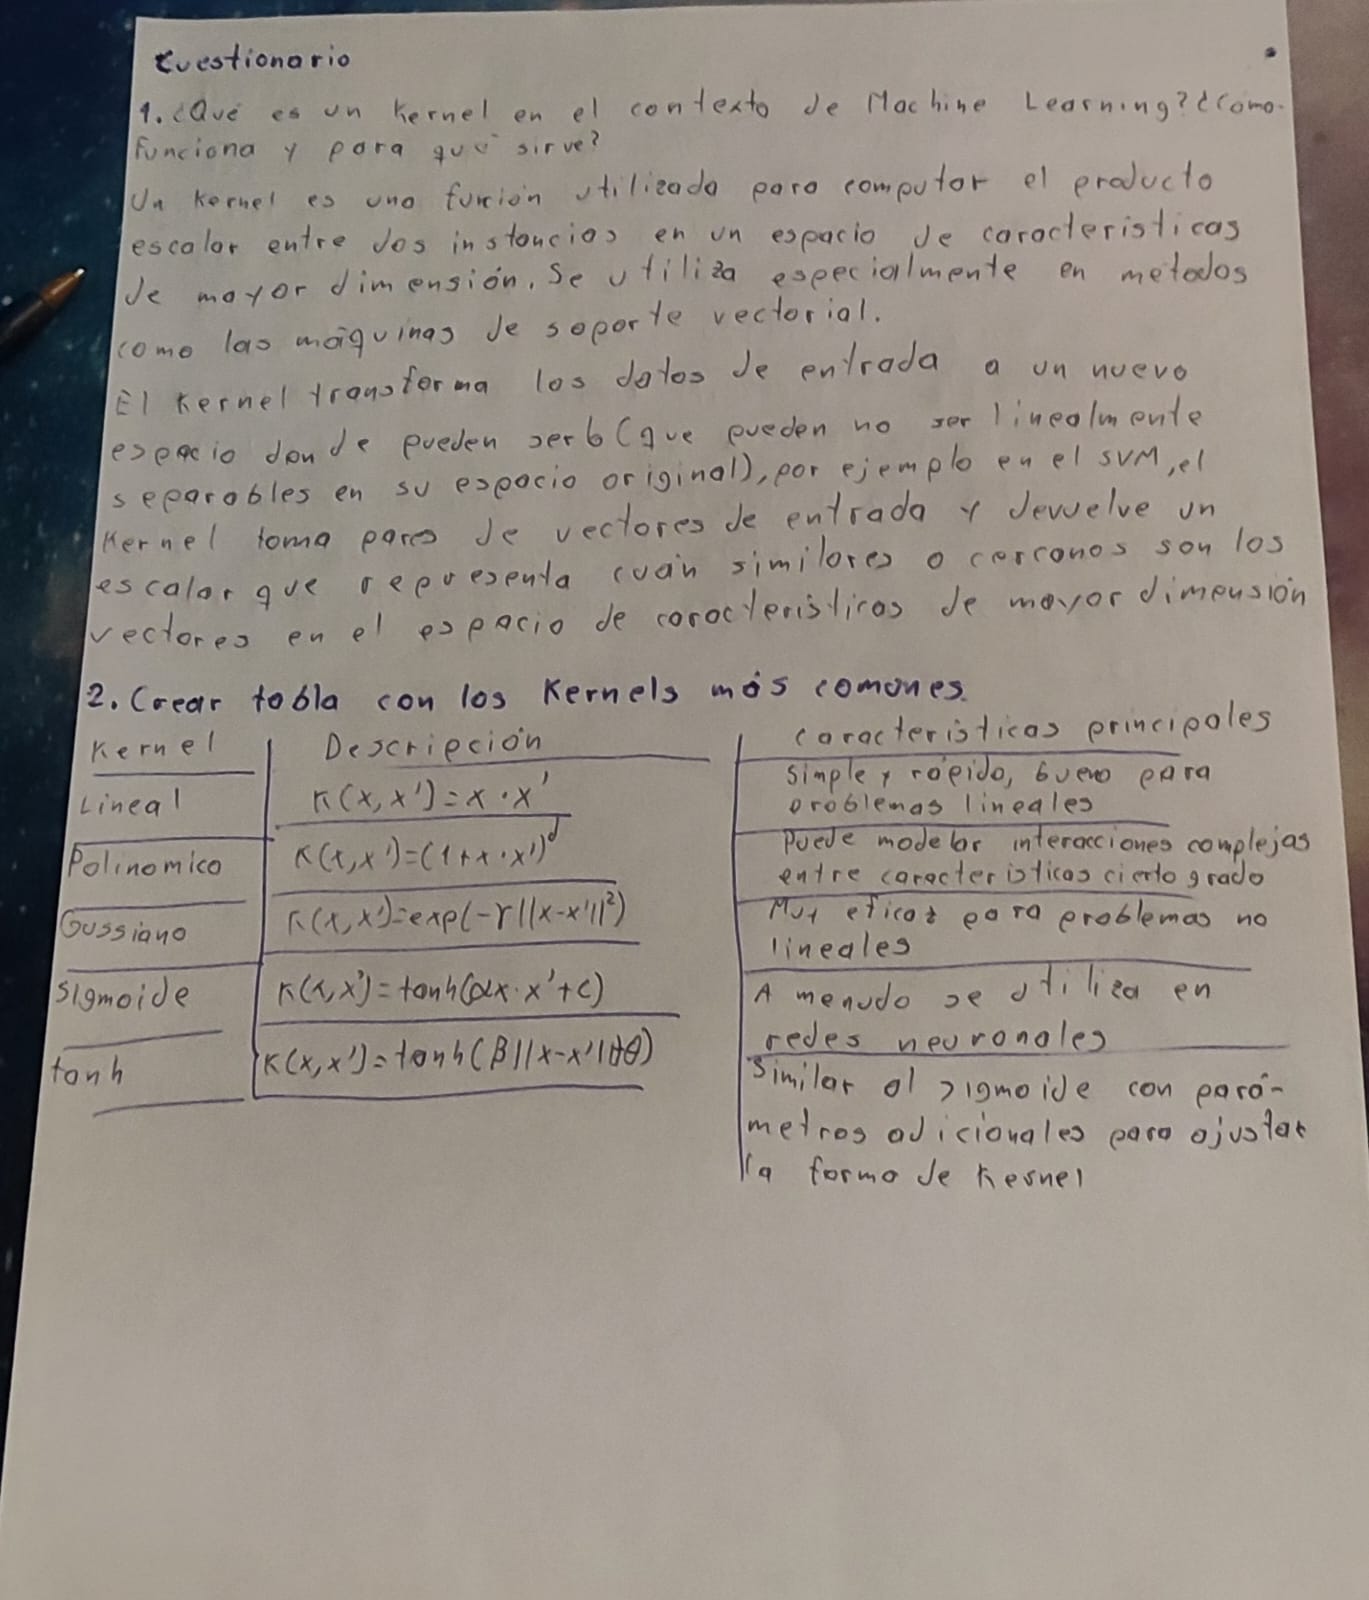 Cuestionario
1. ¿Qué es un Kernel en el contexto de Machine Learning? ¿Como
funciona y para qué sirve?
Un Kernel es una función utilizada para computar el producto
escalar entre dos instancias en un espacio de caracteristicas
de mayor dimensión. Se utiliza especialmente en metodos
como las máquinas de soporte vectorial.
El Kernel transforma los datos de entrada a un nuevo
espacio donde pueden ser (que pueden no ser linealmente
separables en su espacio original), por ejemplo en el SVM, el
Kernel toma pares de vectores de entrada y devuelve un
escalar que representa cuán similares o cercanos son los
vectores en el espacio de características de mayor dimensión
2. Crear tabla con los Kernels más comunes.
Kernel | Descripción | características principales
Lineal | K(x, x') = x · x' | Simple y rápido, bueno para
problemas lineales
Polinomico | K(x, x') = (1 + x · x')^d | Puede modelar interacciones complejas
entre características cierto grado
Gussiano | K(x, x') = exp(-γ||x-x'||²) | Muy eficaz para problemas no
lineales
Sigmoide | K(x, x') = tanh(αx · x' + c) | A menudo se utiliza en
redes neuronales
tanh | K(x, x') = tanh(β||x-x'||+θ) | Similar al sigmoide con pará-
metros adicionales para ajustar
la forma de Kernel